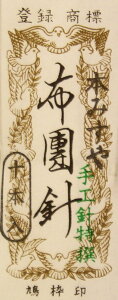 登録商標
本みすや
手工針特撰
布團針
十本入
鳩枠印